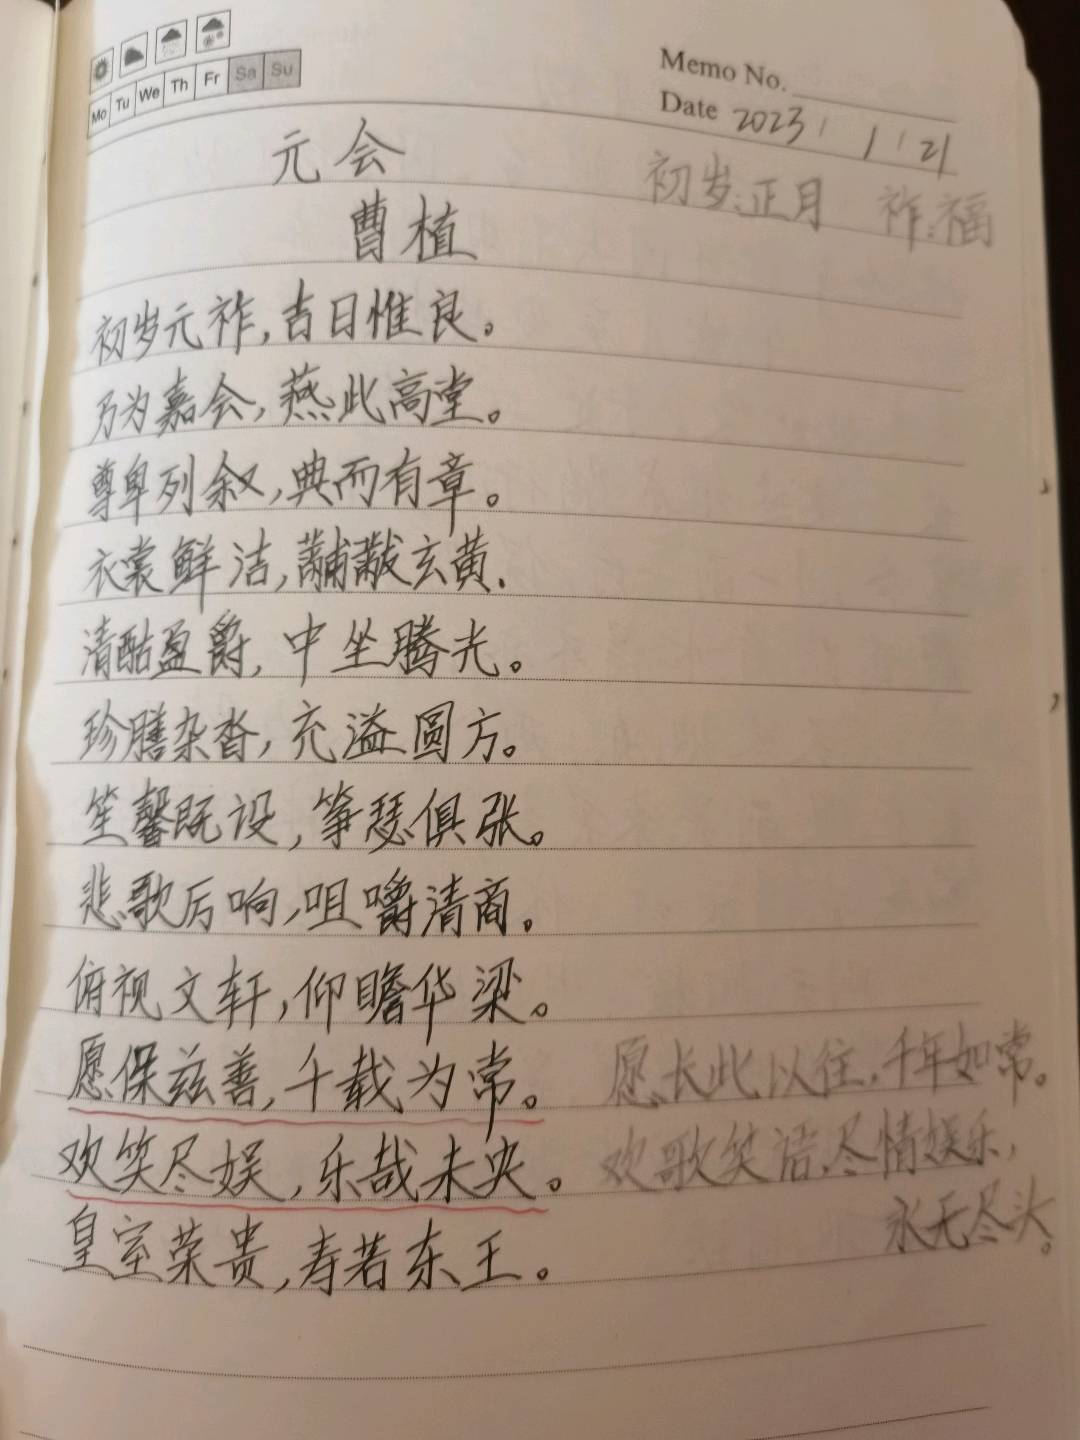 Mo Tu We Th Fr Sa Su
Memo No.
Date 2023 1 21
元会
初岁:正月 祚:福
曹植
初岁元祚,吉日惟良。
乃为嘉会,燕此高堂。
尊卑列叙,典而有章。
衣裳鲜洁,黼黻玄黄.
清酤盈爵,中坐腾光。
珍膳杂沓,充溢圆方。
笙馨既设,筝瑟俱张。
悲歌厉响,咀嚼清商。
俯视文轩,仰瞻华梁。
愿保兹善,千载为常。 愿长此以往,千年如常。
欢笑尽娱,乐哉未央。 欢歌笑语,尽情娱乐,
永无尽头。
皇室荣贵,寿若东王。